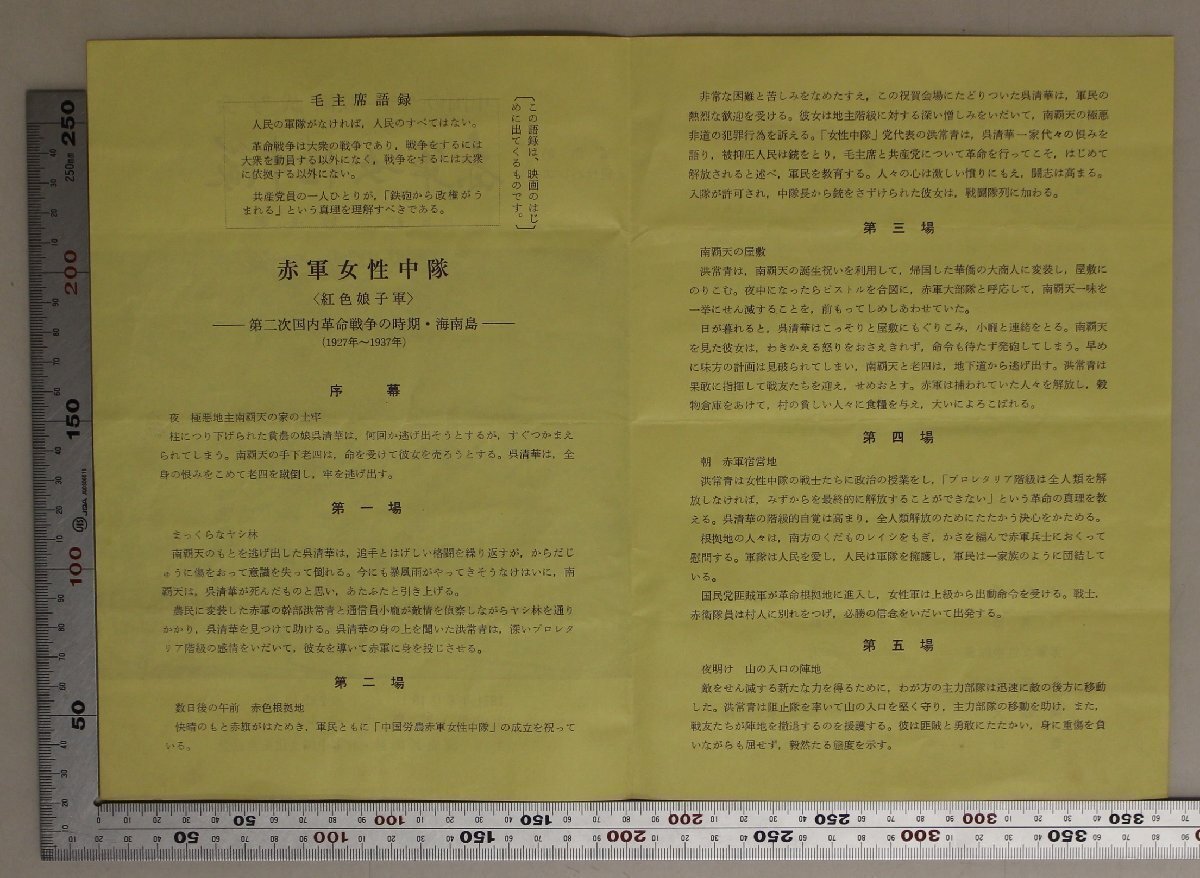 毛主席語録
人民の軍隊がなければ，人民のすべてはない。
革命戦争は大衆の戦争であり，戦争をするには
大衆を動員する以外になく，戦争をするには大衆
に依拠する以外にない。
共産党員の一人ひとりが，「鉄砲から政権がう
まれる」という真理を理解すべきである。
〔この語録は、映画のはじ
めに出てくるものです。〕
赤軍女性中隊
〈紅色娘子軍〉
── 第二次国内革命戦争の時期・海南島 ──
(1927年～1937年)
序　幕
夜　極悪地主南覇天の家の土牢
柱につり下げられた貧農の娘呉清華は，何回か逃げ出そうとするが，すぐつかまえ
られてしまう。南覇天の手下老四は，命を受けて彼女を売ろうとする。呉清華は，全
身の恨みをこめて老四を蹴倒し，牢を逃げ出す。
第一場
まっくらなヤシ林
南覇天のもとを逃げ出した呉清華は，追手とはげしい格闘を繰り返すが，からだじ
ゅうに傷をおって意識を失って倒れる。今にも暴風雨がやってきそうなけはいに，南
覇天は，呉清華が死んだものと思い，あたふたと引き上げる。
農民に変装した赤軍の幹部洪常青と通信員小龐が敵情を偵察しながらヤシ林を通り
かかり，呉清華を見つけて助ける。呉清華の身の上を聞いた洪常青は，深いプロレタ
リア階級の感情をいだいて，彼女を導いて赤軍に身を投じさせる。
第二場
数日後の午前　赤色根拠地
快晴のもと赤旗がはためき，軍民ともに「中国労農赤軍女性中隊」の成立を祝って
いる。
非常な困難と苦しみをなめたすえ，この祝賀会場にたどりついた呉清華は，軍民の
熱烈な歓迎を受ける。彼女は地主階級に対する深い憎しみをいだいて，南覇天の極悪
非道の犯罪行為を訴える。「女性中隊」党代表の洪常青は，呉清華一家代々の恨みを
語り，被抑圧人民は銃をとり，毛主席と共産党について革命を行ってこそ，はじめて
解放されると述べ，軍民を教育する。人々の心は激しい憤りにもえ，闘志は高まる。
入隊が許可され，中隊長から銃をさずけられた彼女は，戦闘隊列に加わる。
第三場
南覇天の屋敷
洪常青は，南覇天の誕生祝いを利用して，帰国した華僑の大商人に変装し，屋敷に
のりこむ。夜中になったらピストルを合図に，赤軍大部隊と呼応して，南覇天一味を
一挙にせん滅することを，前もってしめしあわせていた。
日が暮れると，呉清華はこっそりと屋敷にもぐりこみ，小龐と連絡をとる。南覇天
を見た彼女は，わきかえる怒りをおさえきれず，命令も待たず発砲してしまう。早め
に味方の計画は見破られてしまい，南覇天と老四は，地下道から逃げ出す。洪常青は
果敢に指揮して戦友たちを迎え，せめおとす。赤軍は捕われていた人々を解放し，穀
物倉庫をあけて，村の貧しい人々に食糧を与え，大いによろこばれる。
第四場
朝　赤軍宿営地
洪常青は女性中隊の戦士たちに政治の授業をし，「プロレタリア階級は全人類を解
放しなければ，みずからを最終的に解放することができない」という革命の真理を教
える。呉清華の階級的自覚は高まり，全人類解放のためにたたかう決心をかためる。
根拠地の人々は，南方のくだものレイシをもぎ，かさを編んで赤軍兵士におくって
慰問する。軍隊は人民を愛し，人民は軍隊を擁護し，軍民は一家族のように団結して
いる。
国民党匪賊軍が革命根拠地に進入し，女性軍は上級から出動命令を受ける。戦士，
赤衛隊員は村人に別れをつげ，必勝の信念をいだいて出発する。
第五場
夜明け　山の入口の陣地
敵をせん滅する新たな力を得るために，わが方の主力部隊は迅速に敵の後方に移動
した。洪常青は阻止隊を率いて山の入口を堅く守り，主力部隊の移動を助け，また，
戦友たちが陣地を撤退するのを援護する。彼は匪賊と勇敢にたたかい，身に重傷を負
いながらも屈せず，毅然たる態度を示す。